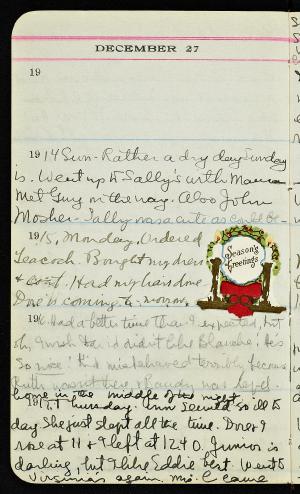 DECEMBER 27
19
1914 Sun - Rather a dry day Sunday
is. Went up to Sally's with Mama
Met Guy on the way. Also John
Mosher - Sally was a cute as could be -
1915, Monday, Ordered
Bought my dress
& Had my hair done.
Dine is coming to-morrow.
1916 Had a better time than I expected, but
oh, I wish David didn't like Blanche! He's
so nice! misbehaved terribly because
they & Baudy was
home in the middle of the night
19 Thursday. Ann Seemed so ill to
day She just slept all the time. Dine & I
rose at 11 & I left at 12 40. Junior is
darling, but I like Eddie best. Went to
Virginia's again. Mrs. C came
Season's
Greetings